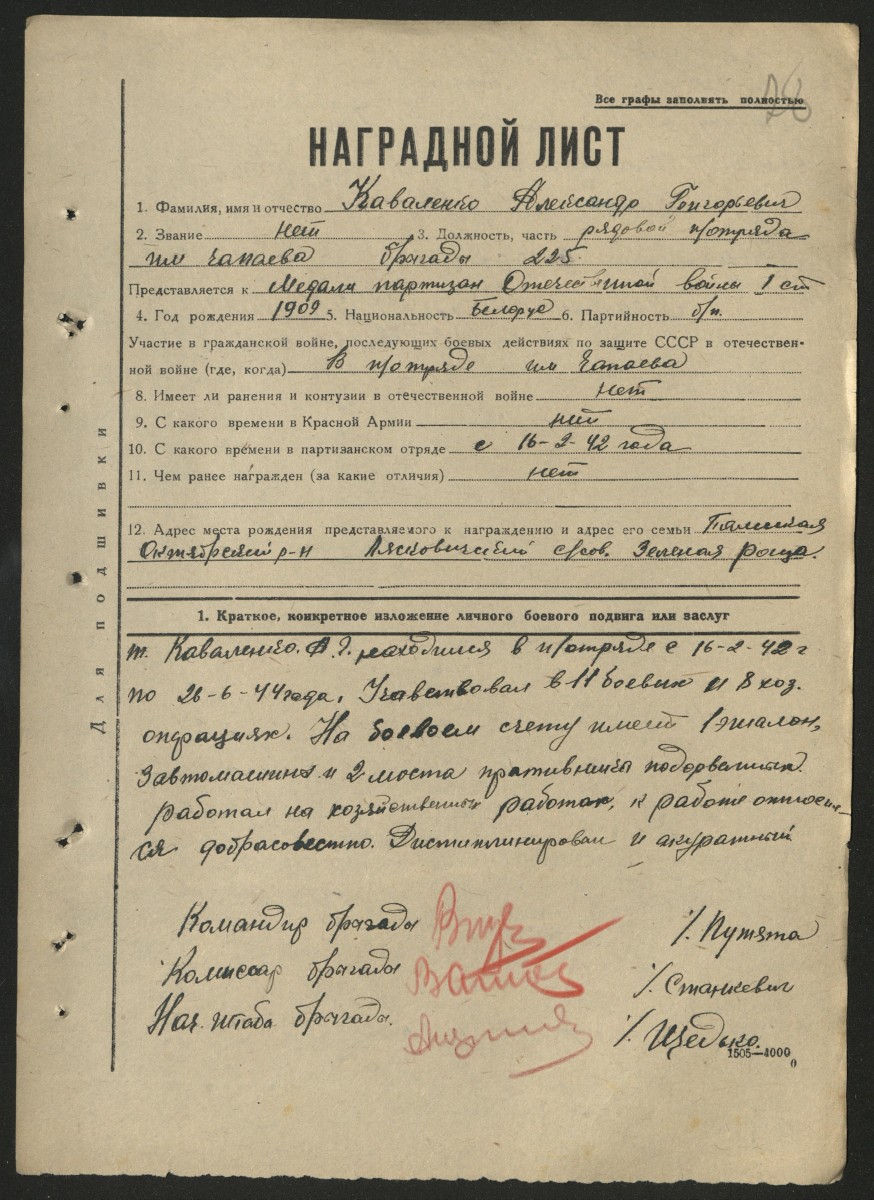 Все графы заполнять полностью
НАГРАДНОЙ ЛИСТ
1. Фамилия, имя и отчество Каваленко Александр Григорьевич
2. Звание нет 3. Должность, часть рядовой п/отряда
им Чапаева бригады 225.
Представляется к Медали партизан Отечественной войны 1 ст
4. Год рождения 1909 5. Национальность Белорус 6. Партийность б/п.
Участие в гражданской войне, последующих боевых действиях по защите СССР в отечествен-
ной войне (где, когда) В п/отряде им Чапаева
8. Имеет ли ранения и контузии в отечественной войне нет
9. С какого времени в Красной Армии нет
10. С какого времени в партизанском отряде с 16-2-42 года
11. Чем ранее награжден (за какие отличия) нет
12. Адрес места рождения представляемого к награждению и адрес его семьи
Октябрский р-н Лясковический с/сов. Зеленая роща.
Для подшивки
1. Краткое, конкретное изложение личного боевого подвига или заслуг
т. Каваленко. А. Г. находился в п/отряде с 16-2-42 г
по 26-6-44 года. Учавствовал в 11 боевых и 8 хоз.
операциях. На боевом счету имеет 1 эшалон,
3 автомашины и 2 моста противника
работал на хозяйственных работах, к работе относил-
ся добрасовестно. Дистиплинирован и акуратный
Командир бригады /. Путята
Комиссар бригады /. Станкевич
Нач. штаба бригады. /. Щедько.
1505—4000
0